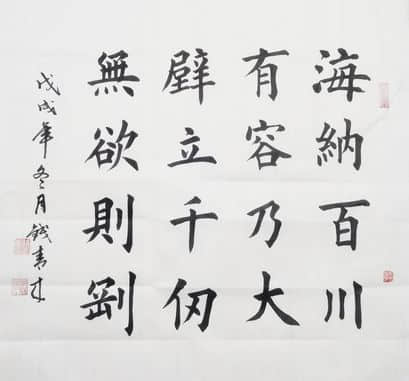 海納百川
有容乃大
壁立千仞
無欲則剛
戊戌年冬月钱青才